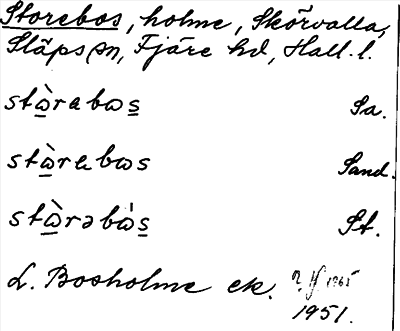 Storebos, holme, Skörvalla,
Släps sn, Fjäre hd, Hall. l.
stὼrabωs Sa.
stὼrabωs Sand.
stὼrəbὼs St.
L. Bosholme ek.
1965
1951.